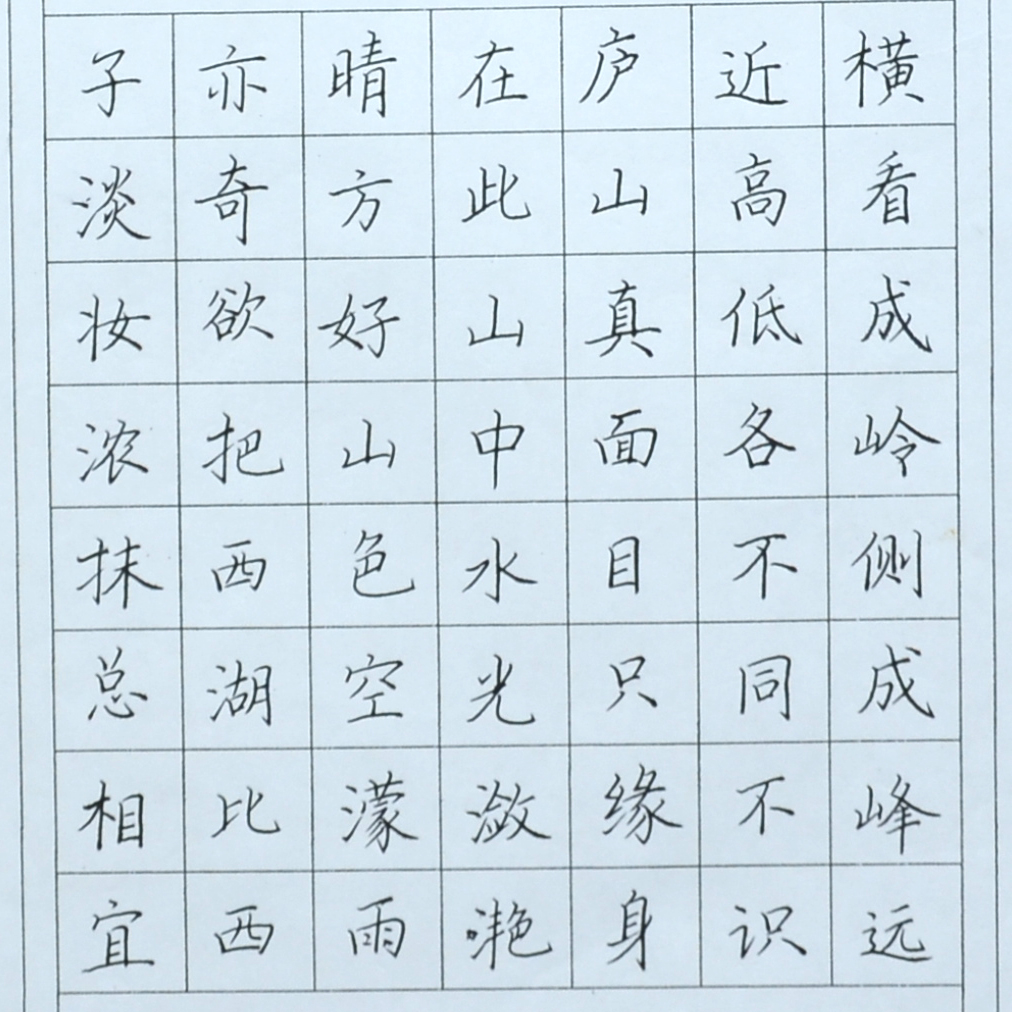 横看成岭侧成峰远
近高低各不同不识
庐山真面目只缘身
在此山中水光潋滟
晴方好山色空濛雨
亦奇欲把西湖比西
子淡妆浓抹总相宜